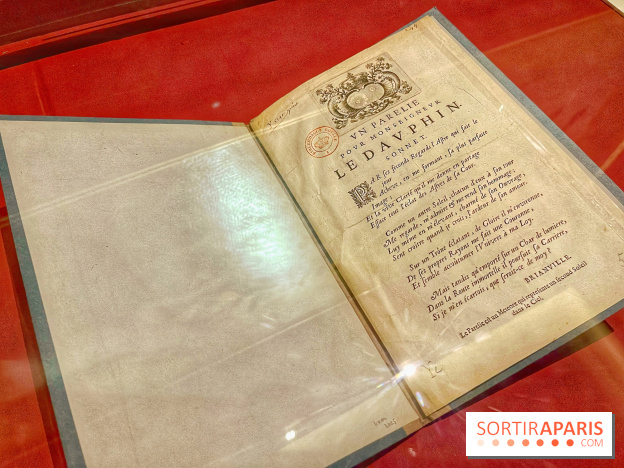 VN PARELIE
POVR MONSEIGNEVR
LE DAVPHIN.
SONNET.
PAR ses seconds Regards l'Astre qui fait le
jour
Acheve, en me formant, sa plus parfaite
Image;
Et la vive Clarté qu'il me donne en partage
Efface tout l'éclat des Astres de sa Cour.
Comme un autre Soleil, chacun d'eux à son tour
Me regarde, m'admire & me rend son hommage;
Luy même en m'élevant, charmé de son Ouvrage,
Sent croître quand je crois, l'ardeur de son amour.
Sur un Trône éclatant, de Gloire il m'environne,
De ses propres Rayons me fait une Couronne,
Et semble accoûtumer l'Univers à ma Loy.
Mais tandis qu'emporté sur un Char de lumiere,
Dans la Route immortelle il poursuit sa Carriere,
Si je m'en écartois, que seroit-ce de moy?
BRIANVILLE.
Le Parelie est un Meteore qui represente un second Soleil
dans le Ciel.
SORTIRAPARIS
.COM